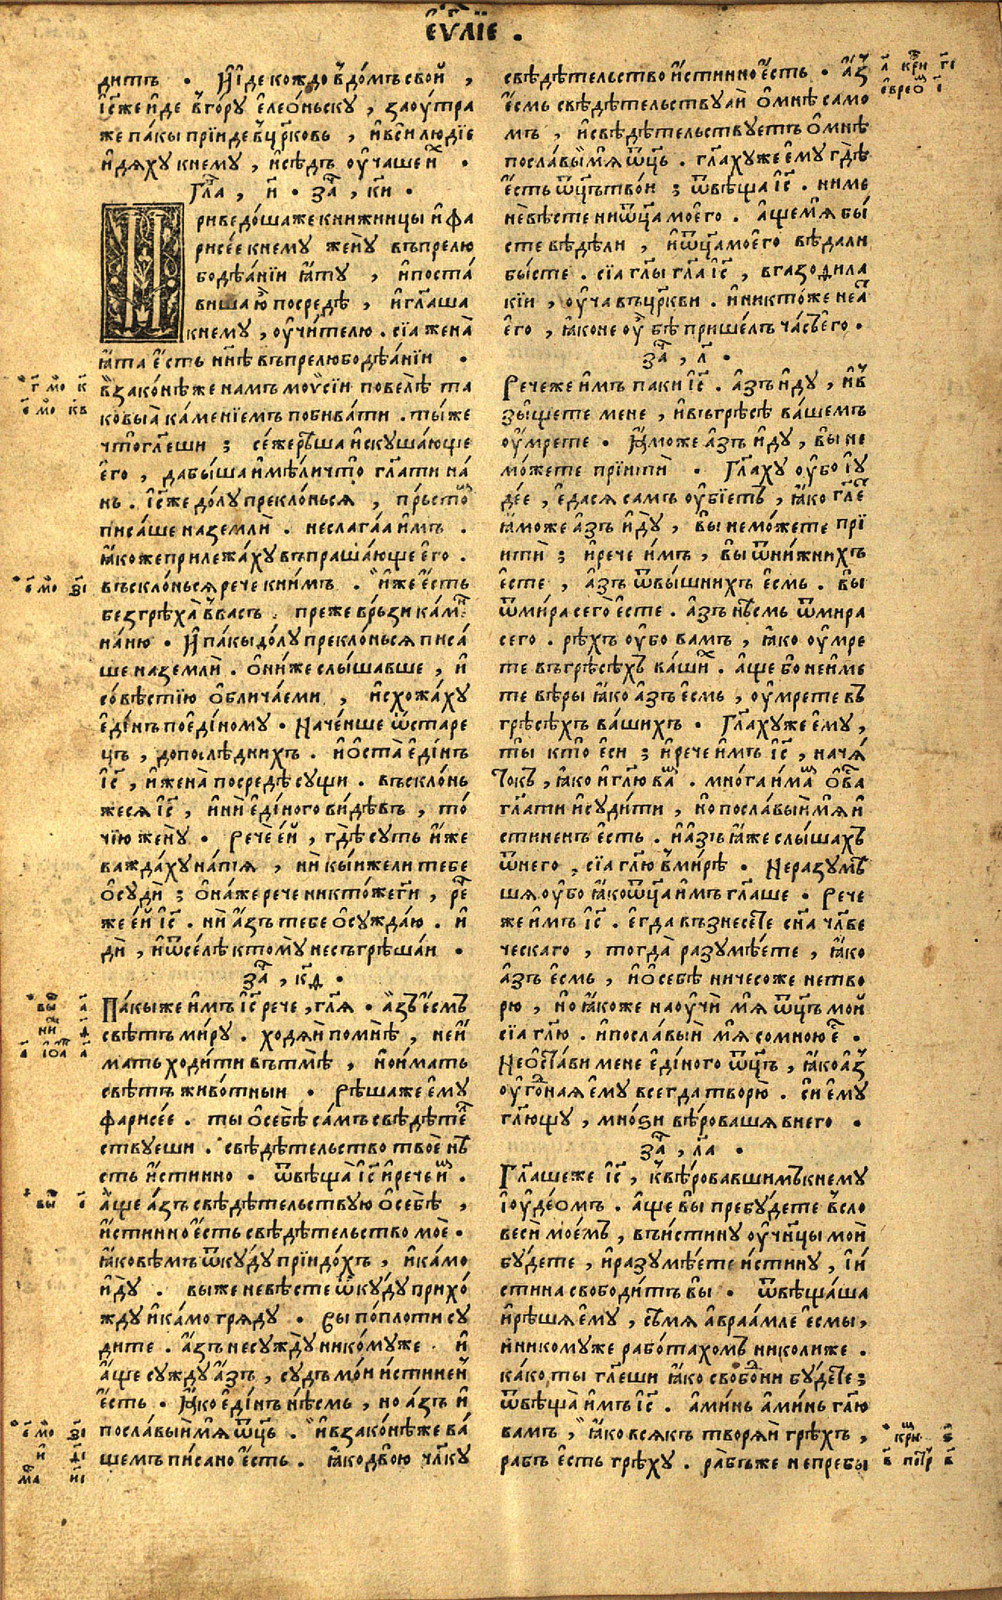 еѵⷢ҇лїе .
дитъ . И҆ иде кождо в̾домъ свой ,
і҆с҃же и҆де в̾гору елео́ньску , заоу́тра
же па́кы прїиде в̾цр҃ковь , и҆вси людїе
и҆дяху кнему , и҆сѣдъ оу҆чаше и҆х .
Гла҃ , и҃ . за҃ , к҃и .
Приведо́шаже книжницы и҆ фа
рисѣе кнему жену̀ въпрелю
бодѣа́нїи ꙗ҆ту , и҆поста́
виша ю҆ посредѣ , и҆гл҃аша
кнему , оу҆чи́телю . сїа жена̀
ꙗ҆та е҆сть нн҃ѣ въпрелюбодѣа́нїи .
в̾зако́нѣже намъ моѵсїи повелѣ та
ковыѧ ка́менїемъ побива́ти . ты́же
что̀гл҃еши ; се́жерѣша и҆скуша́юще
е҆го , дабы́ша и҆мѣ́ли что̀ гл҃ати на́
нь . і҆с҃же до́лу прекло́нься , пръ́стом
писа́ше наземлѝ . неслага́а и҆мъ .
ꙗ҆коже прилежа́ху въпраша́юще е҆го .
въскло́нься рече книмъ . и҆же е҆сть
безгрѣха̀ в̾васъ . преже връ́зи ка́мень
на́ню . И҆ па́кы до́лу прекло́нься писа́
ше наземлѝ . ѻ҆ни́же слы́шавше , и҆
со́вѣстїю ѻ҆блича́еми , и҆схожа́ху
е҆ди́нъ пое҆ди́ному . Наче́нше ѿстаре
цъ , допослѣднихъ . и҆ѡ҆ста̀ е҆ди́нъ
І҆с҃ , и҆жена̀ посредѣ сущи . въскло́нь
жеся і҆с҃ , и҆ни е҆ди́ного ви́дѣвъ , то́
чїю жену̀ . Рече е҆й , гдѣ суть и҆же
важда́ху натя̀ , нѝ кыиже ли тебе
ѡ҆судѝ ; ѻ҆на́же рече никто́же ги҃ , рече
же е҆й і҆с҃ . нѝ а҆зъ тебе ѡ҆сужда́ю . и҆
дѝ , и҆ѿселѣ ктому̀ несъгрѣша́и .
за҃ , к҃ѳ .
Па́кыже и҆мъ і҆с҃ рече , гл҃я . а҆зъ е҆смъ
свѣтъ ми́ру . ходя́й помнѣ̀ , неи
мать ходи́ти вътмѣ̀ , нои́мать
свѣтъ живо́тныи . Рѣшаже е҆му
фарисѣе . ты ѡ҆себѣ̀ са́мъ свѣдѣте
ствуеши . свѣдѣтельство твое нѣ
сть и҆стинно . ѿвѣща̀ і҆с҃ и҆рече и҆м .
а҆ще а҆зъ свѣдѣтельствую ѡ҆себѣ̀ ,
и҆стинно е҆сть свѣдѣтельство мое .
ꙗ҆ковѣмъ ѿкуду прїидо́хъ , и҆ка́мо
и҆ду̀ . выже невѣсте ѿкуду прихо́
жду и҆ка́мо гряду . Вы попло́ти су
дите . а҆зъ несужду̀ нико́муже . и҆
а҆ще сужду а҆зъ , судъ мо́и и҆стинен
е҆сть . Ꙗ҆ко е҆ди́нъ нѣсмь , но а҆зъ и҆
посла́выи мя ѿц҃ь . и҆взако́нѣже ва́
шемъ пи́сано е҆сть . ꙗ҆кодвою чл҃ку
свѣдѣтельство и҆стинно е҆сть . а҆з
е҆смь свѣдѣтельствуай ѡ҆мнѣ само
мъ , и҆свѣдѣтельствуетъ ѡ҆мнѣ
посла́выи мя ѿц҃ь . гл҃ахуже е҆му гдѣ
е҆сть ѿц҃ътво́и ; ѿвѣща і҆с҃ . ниме
невѣсте ниѿц҃а мое҆го . а҆ще мя бы́
сте вѣдѣли , и҆ѿц҃а мое҆го вѣдали
бы́сте . сїа гл҃ы гл҃а і҆с҃ , вгазофила
кїи , оу҆ча въцр҃кви . и҆никто́же нея
е҆го , ꙗ҆коне оу҆ бѣ пришелъ ча́съ е҆го .
за҃ , л҃ .
Рече́же и҆мъ паки і҆с҃ . а҆зъ и҆ду , и҆в̾
зы́щете мене , и҆въгрѣсѣ ва́шемъ
оу҆мрете . И҆може а҆зъ и҆ду , вы не
мо́жете прїитѝ . Гл҃аху оу҆бо і҆у
де́е , е҆дася самъ оу҆бїетъ , ꙗ҆ко гл҃е
ꙗ҆може а҆зъ и҆ду , вы немо́жете прї
итѝ ; и҆рече и҆мъ , вы ѿни́жнихъ
е҆сте , а҆зъ ѿвы́шнихъ е҆смь . вы
ѿми́ра сего е҆сте . а҆зъ нѣ́смь ѿмира
сего . рѣхъ оу҆бо вамъ , ꙗ҆ко оу҆мре
те въгрѣсѣхъ ва́ших . а҆ще бо неиме
те вѣры ꙗ҆ко а҆зъ е҆смь , оу҆мрете въ
грѣсѣхъ ва́шихъ . Гл҃ахуже е҆му ,
ты кто̀ еси ; и҆рече и҆мъ і҆с҃ , нача́
токъ , ꙗ҆ко и҆ гл҃ю вам . мно́га и҆мам ѡ҆вас
гл҃ати и҆суди́ти , но посла́выи мя и҆
стиненъ е҆сть . и҆ а҆зъ ꙗ҆же слы́шахъ
ѿнего , сїа гл҃ю вми́рѣ . Неразумѣ
шя оу҆бо ꙗ҆коѿц҃а и҆мъ гл҃аше . Рече
же и҆мъ і҆с҃ . е҆гда възнесете сн҃а чл҃вѣ
ческаго , тогда̀ разумѣ́ете , ꙗ҆ко
а҆зъ е҆смь , и҆ѡ҆себѣ ничесоже нетво
рю , но ꙗ҆коже наоучи мя ѿц҃ъ мой
сїа гл҃ю . и҆посла́выи мя сомною е҆с .
Неѡ҆ста́ви мене е҆ди́ного ѿц҃ъ , ꙗ҆ко а҆з
оу҆го́дная е҆му всегда творю . си е҆му
гл҃ющу , мно́зи вѣроваша внего .
за҃ , л҃а .
Гл҃аше́же і҆с҃ , к̾вѣровавшимъ кнему
і҆оуде́омъ . а҆ще вы пребу́дете в̾сло
весѝ мое́мъ , въи́стину оу҆чн҃цы мои̇
бу́дете , и҆разумѣ́ете и́стину , і҆и
стина свободи́тъ вы . ѿвѣща́ша
и҆рѣшя е҆му , сѣ́мя а҆враа́мле е҆смы ,
и҆никомуже рабо́тахомъ николиже .
ка́ко ты гл҃еши ꙗ҆ко свобо́дни бу́дете ;
ѿвѣща̀ и҆мъ і҆с҃ . а҆ми́нь а҆ми́нь гл҃ю
вамъ , ꙗ҆ко всякъ творя́й грѣхъ ,
рабъ е҆сть грѣху . ра́бъже непребы